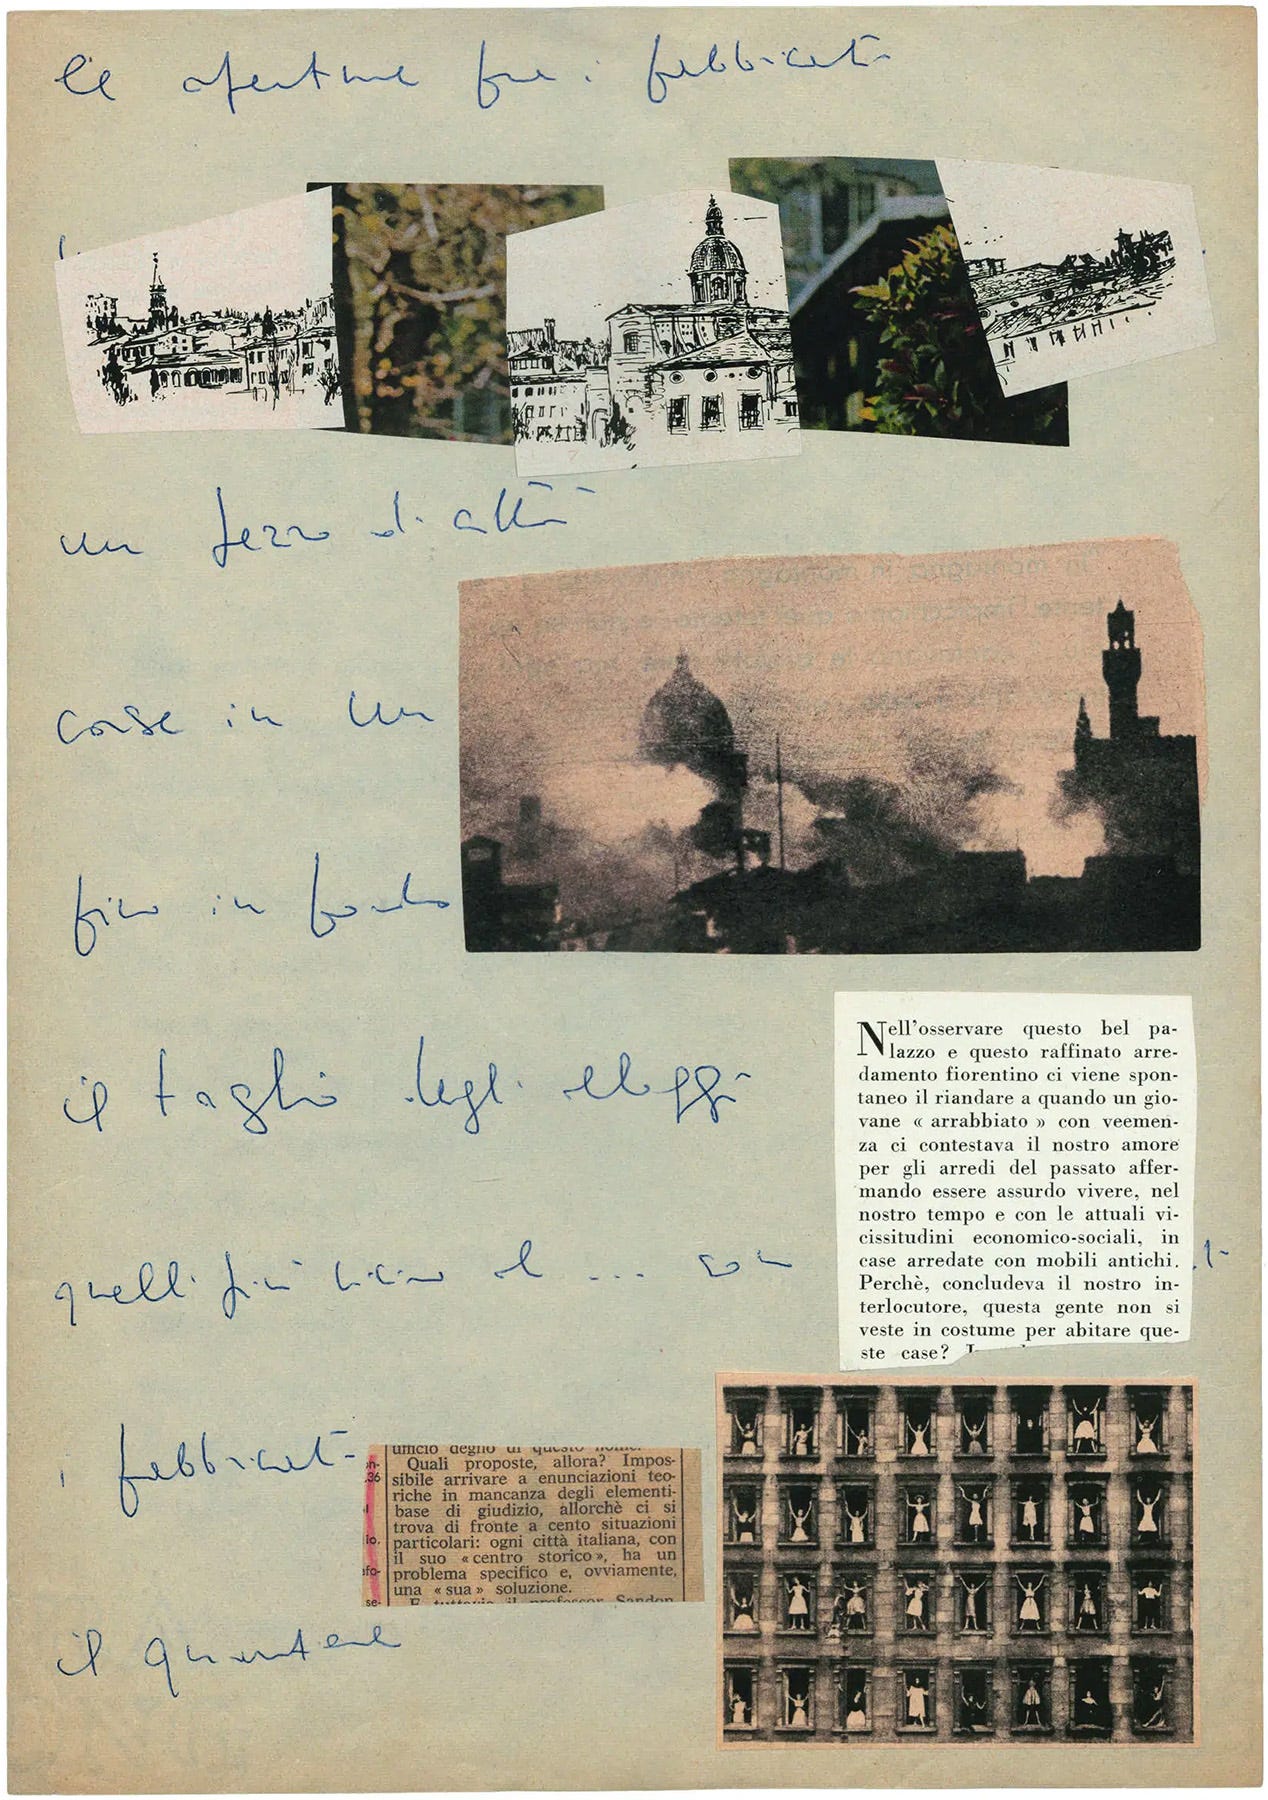 le aperture fra i fabbricati
un pezzo di città
corse in un
fino in fondo
il taglio degli alloggi
Nell'osservare questo bel pa-
lazzo e questo raffinato arre-
damento fiorentino ci viene spon-
taneo il riandare a quando un gio-
vane « arrabbiato » con veemen-
za ci contestava il nostro amore
per gli arredi del passato affer-
mando essere assurdo vivere, nel
nostro tempo e con le attuali vi-
cissitudini economico-sociali, in
case arredate con mobili antichi.
Perchè, concludeva il nostro in-
terlocutore, questa gente non si
veste in costume per abitare que-
ste case?
quelli più vicini al ... con
i fabbricati
ufficio degno di questo nome.
Quali proposte, allora? Impos-
sibile arrivare a enunciazioni teo-
riche in mancanza degli elementi-
base di giudizio, allorchè ci si
trova di fronte a cento situazioni
particolari: ogni città italiana, con
il suo « centro storico », ha un
problema specifico e, ovviamente,
una « sua » soluzione.
E tuttavia il professor Sandon
n-
.36
lo.
afo-
se-
il quartiere